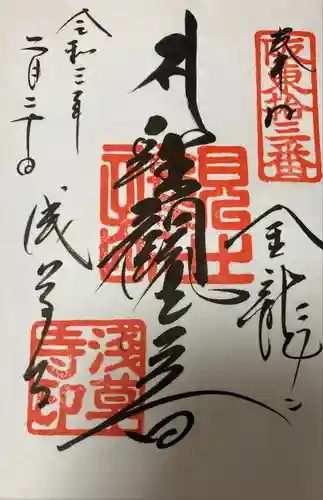 奉拝
坂東拾三番
金龍山
聖観世音
浅草寺
浅草寺印
令和三年
二月二十日